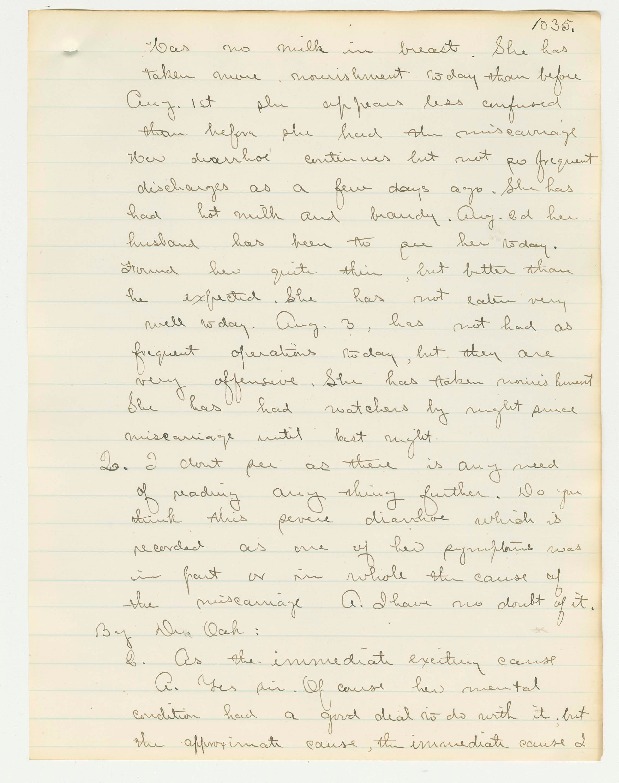 1035.
Has no milk in breast. She has
taken more nourishment today than before
Aug. 1st she appears less confused
than before she had the miscarriage
Her diarrhoe continues but not so frequent
discharges as a few days ago. She has
had hot milk and brandy. Aug. 2d her
husband has been to see her today.
Found her quite thin, but better than
he expected. She has not eaten very
well today. Aug. 3, has not had as
frequent operations today, but they are
very offensive. She has taken nourishment
She has had watchers by night since
miscarriage until last night
Q. I dont see as there is any need
of reading any thing further. Do you
think this severe diarrhoe which is
recorded as one of her symptoms was
in part or in whole the cause of
the miscarriage A. I have no doubt of it.
By Dr. Oak:
Q. As the immediate exciting cause
A. Yes sir. Of cause her mental
condition had a good deal to do with it, but
the approximate cause, the immediate cause I